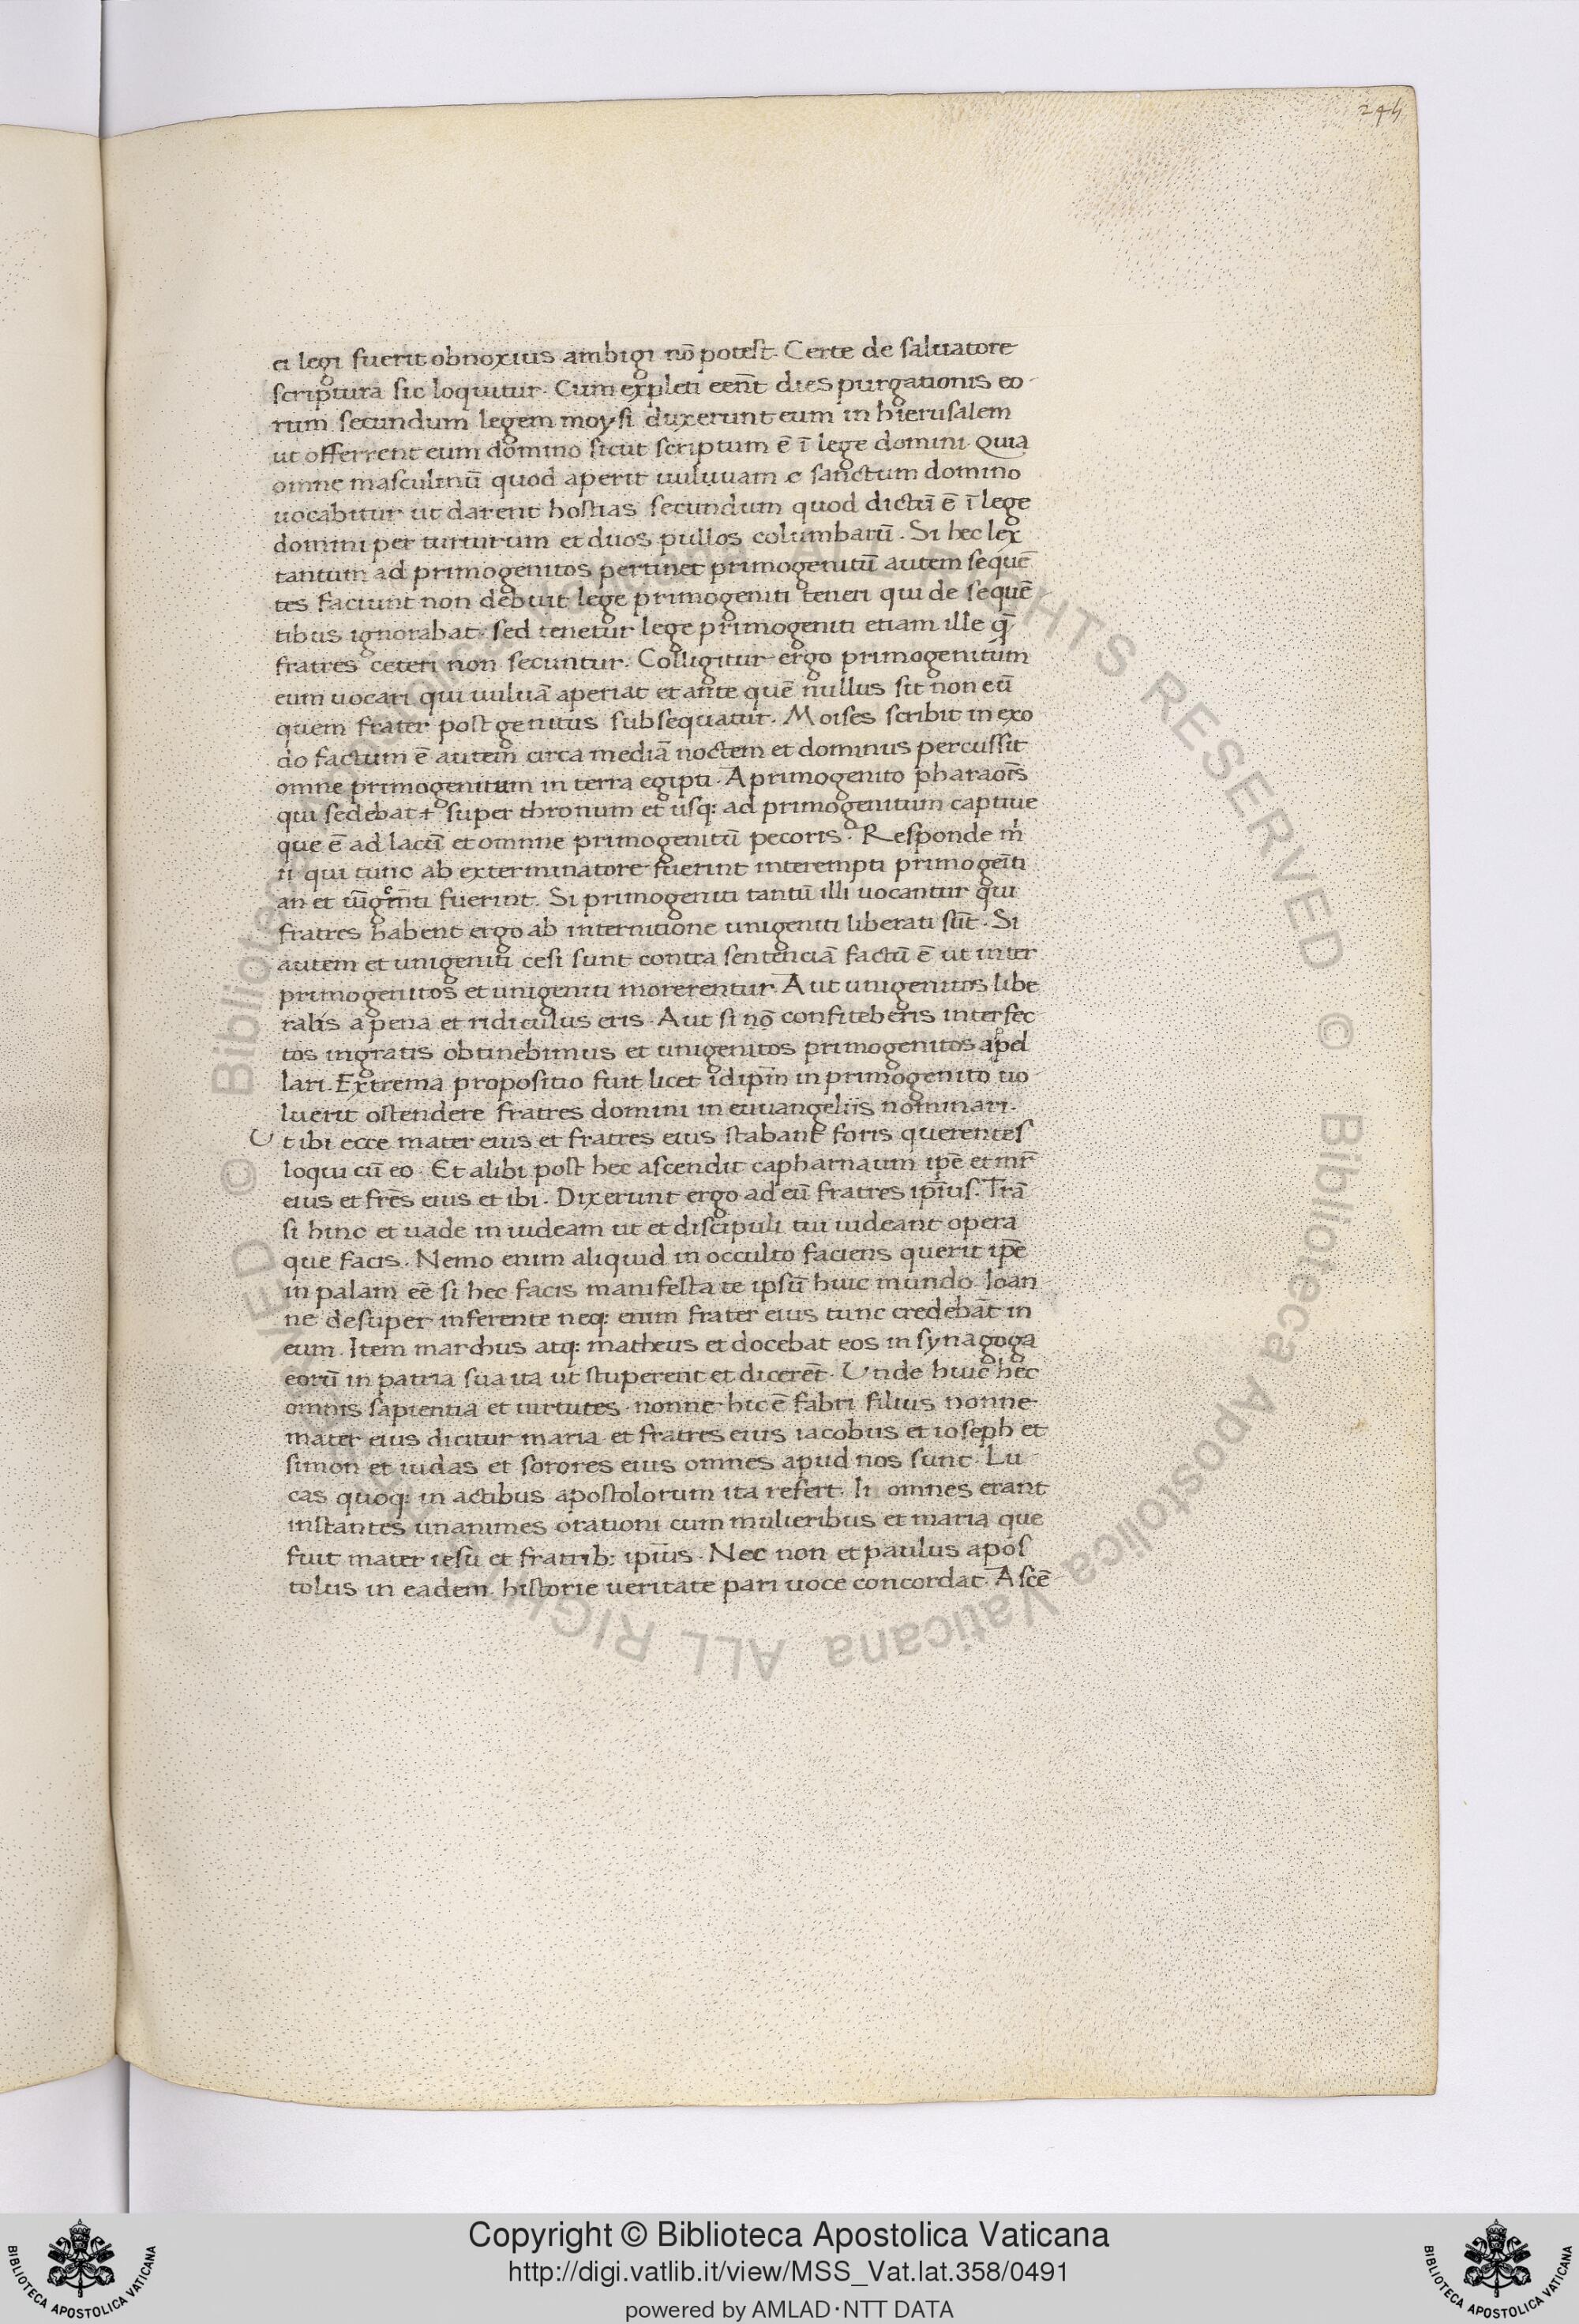 245
ei legi fuerit obnoxius ambigi nō potest. Certe de saluatore
scriptura sic loquitur. Cum expleti eēnt dies purgationis eo
rum secundum legem moysi duxerunt eum in hierusalem
ut offerrent eum domino sicut scriptum ē ī lege domini. Quia
omne masculinū quod aperit uuluuam sanctum domino
uocabitur ut darent hostias secundum quod dictū ē ī lege
domini per turturum et duos pullos columbarū. Si hec lex
tantum ad primogenitos pertinet primogenitū autem sequē
tes faciunt non debuit lege primogeniti teneri qui de sequē
tibus ignorabat. sed tenetur lege primogeniti etiam ille q̄
fratres ceteri non secuntur. Colligitur ergo primogenitum
eum uocari qui uuluā aperiat et ante quē nullus sit non eū
quem frater post genitus subsequatur. Moises scribit in exo
do factum ē autem circa mediā noctem et dominus percussit
omne primogenitum in terra egipti. A primogenito pharaoīs
qui sedebat super thronum et usq: ad primogenitum captiue
que ē ad lacū et omnne primogenitū pecoris. Responde m
ii qui tunc ab exterminatore fuerint interempti primogeīti
an et fuerint. Si primogeniti tantū illi uocantur qui
fratres habent ergo ab internitione unigeniti liberati sūt. Si
autem et unigeniti cesi sunt contra sentenciā factū ē ut inter
primogenitos et unigeniti morerentur. Aut unigenitos libe
rabis a pena et ridiculus eris. Aut si nō confiteberis interfec
tos ingratis obtinebimus et unigenitos primogenitos apel
lari. Extrema propositio fuit licet idipm̄ in primogenito uo
luerit ostendere fratres domini in euuangeliis nominari.
Ut ibi ecce mater eius et fratres eius stabant foris querentes
loqui cū eo. Et alibi post hec ascendit capharnaum ipē et mr̄
eius et frēs eius et ibi. Dixerunt ergo ad eū fratres ipīus. Trā
si hinc et uade in iudeam ut et discipuli tui uideant opera
que facis. Nemo enim aliquid in occulto faciens querit ipē
in palam eē si hec facis manifesta te ipsū huic mundo. Ioan
ne desuper inferente neq: enim frater eius tunc credebāt in
eum. Item marchus atq: matheus et docebat eos in synagoga
eorū in patria sua ita ut stuperent et dicerēt. Unde huic hec
omnis sapientia et uirtutes. nonne hic ē fabri filius nonne
mater eius dicitur maria et fratres eius iacobus et ioseph et
simon et iudas et sorores eius omnes apud nos sunt. Lu
cas quoq: in actibus apostolorum ita refert. Ii omnes erant
instantes unanimes orationi cum mulieribus et maria que
fuit mater iesu et fratrib: ipīus. Nec non et paulus apos
tolus in eadem historie ueritate pari uoce concordat. Ascē
© Biblioteca Apostolica Vaticana ALL RIGHTS RESERVED © Biblioteca Apostolica Vaticana ALL RIGHTS RESERVED
Copyright © Biblioteca Apostolica Vaticana
http://digi.vatlib.it/view/MSS_Vat.lat.358/0491
powered by AMLAD·NTT DATA
BIBLIOTECA APOSTOLICA VATICANA
BIBLIOTECA APOSTOLICA VATICANA